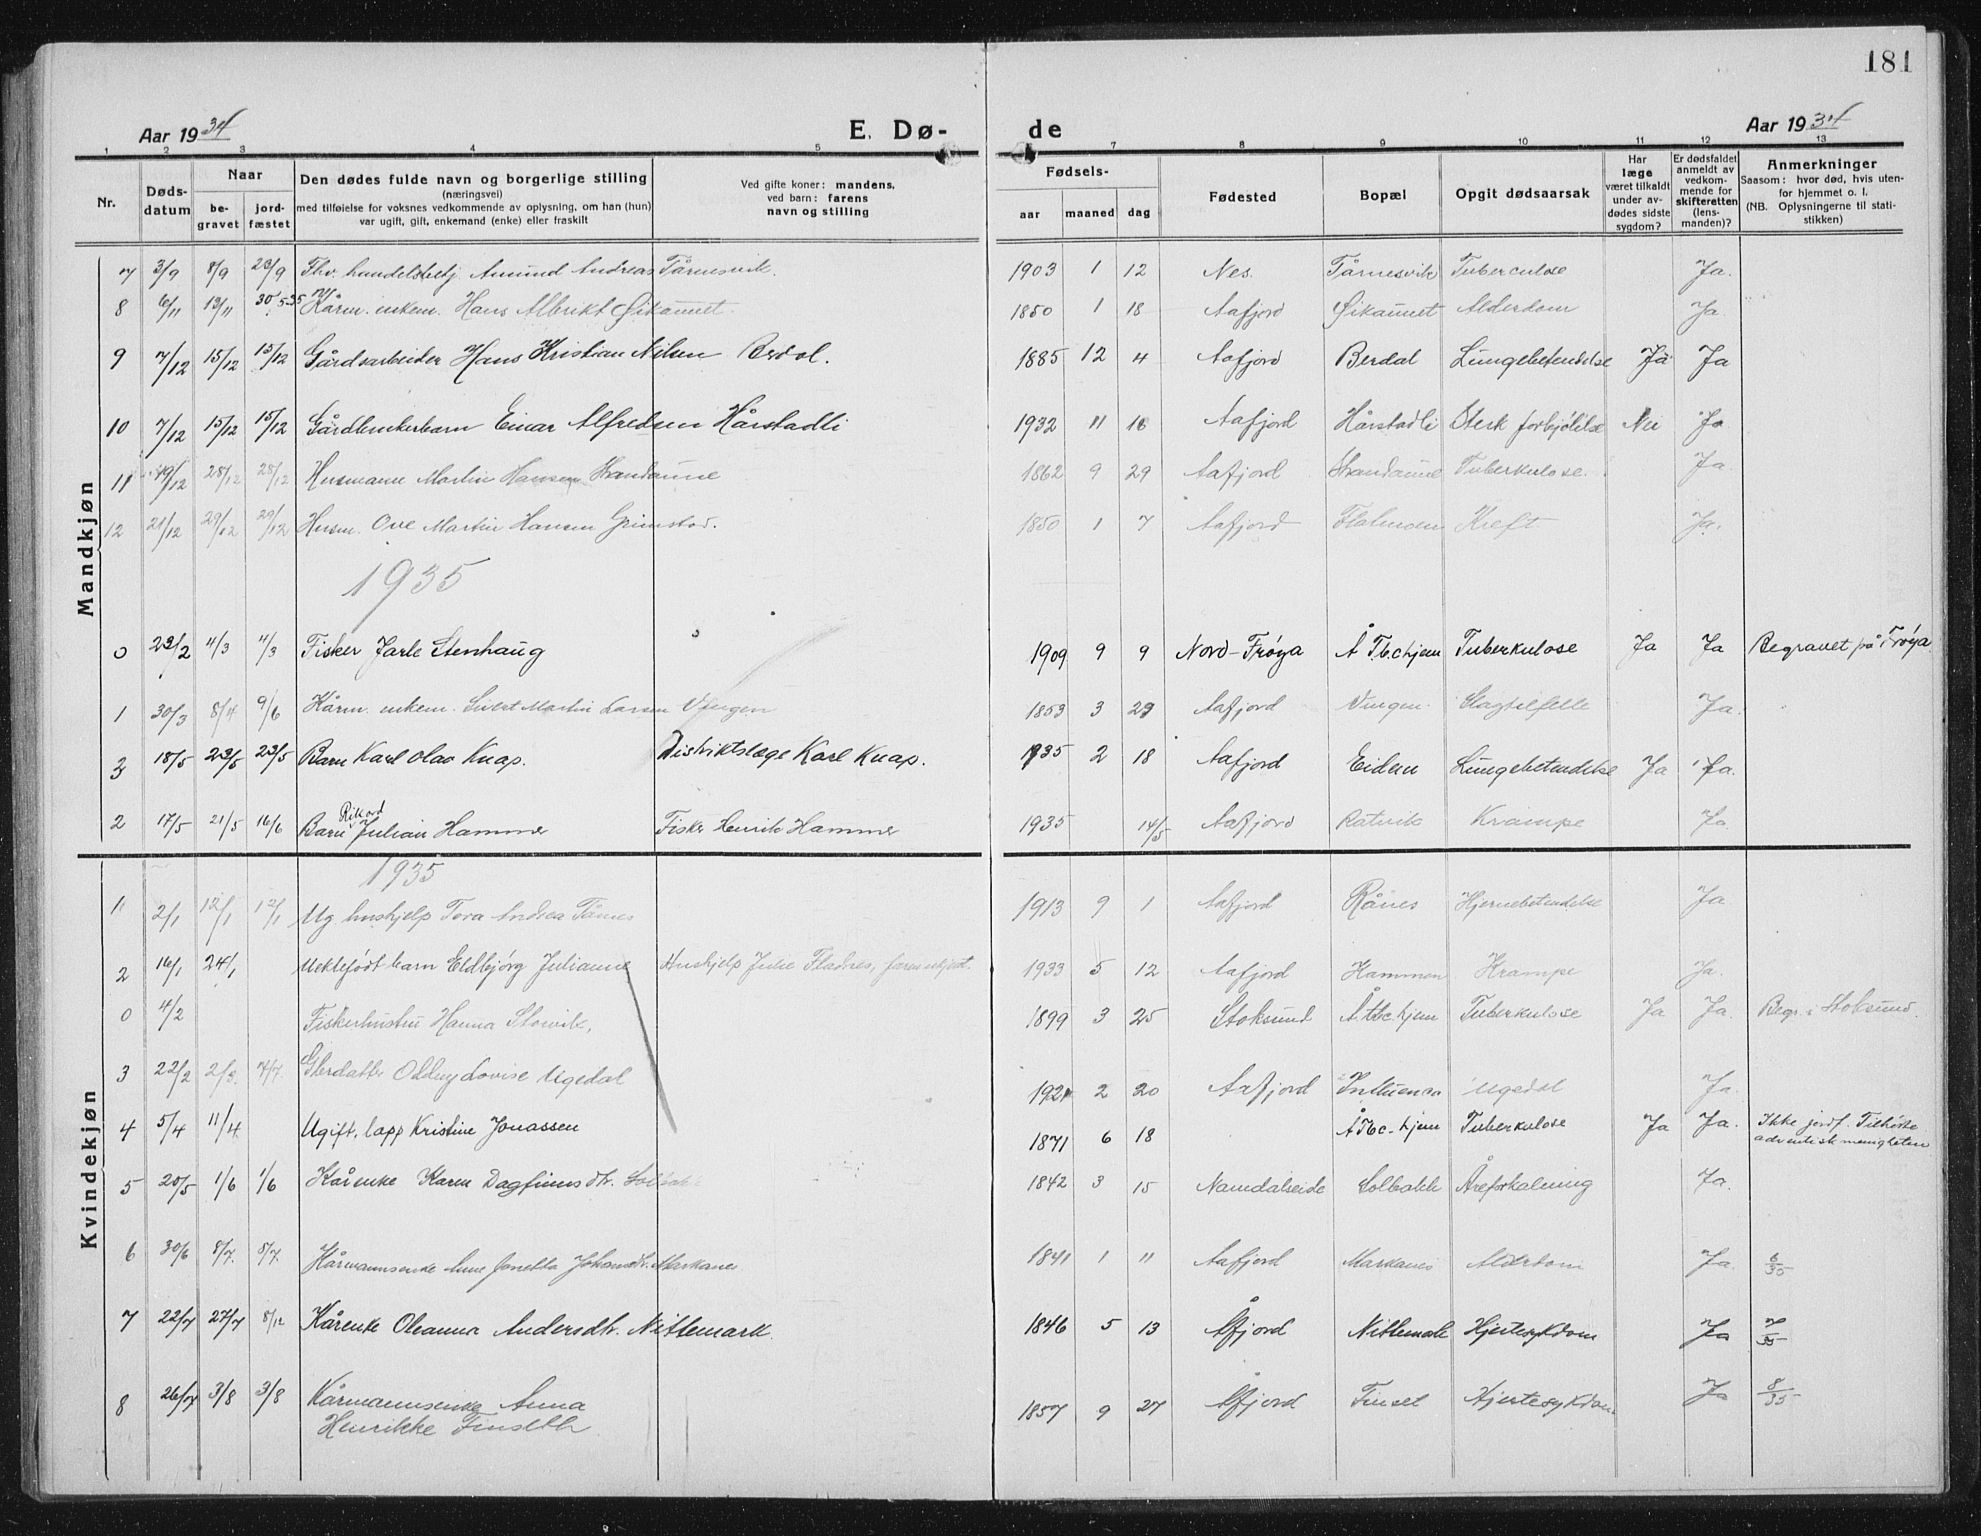 181
Aar 1934 E. Dø- de Aar 1934
1 2 3 4 5 7 8 9 10 11 12 13
Nr. Døds-datum Naar be-gravet jord-fæstet Den dødes fulde navn og borgerlige stilling (næringsvei) med tilføielse for voksnes vedkommende av oplysning, om han (hun) var ugift, gift, enkemand (enke) eller fraskilt Ved gifte koner: mandens, ved barn: farens navn og stilling Fødsels- aar maaned dag Fødested Bopæl Opgit dødsaarsak Har læge været tilkaldt under av-dødes sidste sygdom? Er dødsfaldet anmeldt av vedkom-mende for skifteretten (lens-manden)? Anmerkninger Saasom: hvor død, hvis uten-for hjemmet o. l. (NB. Oplysningerne til stati-stikken)
Mandkjøn
7 3/9 8/9 23/9 Fhv. handelsbetj. Amund Andreas Tårnesvik. 1903 1 12 Nes. Tårnesvik Tuberculose Ja.
8 6/11 13/11 30/5-35 Kårm. enkem. Hans Albrikt Øikaunet. 1850 1 18 Aafjord Øikaunet Alderdom Ja.
9 7/12 15/12 15/12 Gårdsarbeider Hans Kristian Nilsen Berdal. 1885 12 4 Aafjord Berdal Lungebetendelse Ja Ja
10 7/12 15/12 15/12 Gårdbrukerbarn Einar Alfredsen Hårstadli 1932 11 18 Aafjord Hårstadli Sterk forkjølelse Nei Ja
11 19/12 28/12 28/12 Husmann Martin Hansen Strandaune 1862 9 29 Aafjord Strandaune Tuberkulose. Ja.
12 21/12 29/12 29/12 Husm. Ove Martin Hansen Grimstad. 1850 1 7 Aafjord Flatmoen Kreft Ja.
1935
0 23/2 4/3 4/3 Fisker Jarle Stenhaug 1909 9 9 Nord-Frøya Å Tbc hjem Tuberkulose Ja Ja Begravet på Frøya
1 30/3 8/4 9/6 Kårm. enkem. Sivert Martin Larsen Vingen 1853 3 29 Aafjord Vingen. Slagtilfelle Ja.
3 18/5 23/5 23/5 Barn Karl Olav Knap. Distriktslæge Karl Knap. 1935 2 18 Aafjord Eidem Lungebetendelse Ja Ja.
2 17/5 21/5 16/6 Barn Rikard Julian Hammer Fisker Henrik Hammer 1935 14/5 Aafjord Ratvik Krampe Ja
Kvindekjøn
1935
1 2/1 12/1 12/1 Ug. hushjelp Tora Andrea Tårnes 1913 9 1 Aafjord Rånes Hjernebetendelse Ja
2 16/1 24/1 Uektefødt barn Eldbjørg Julianne Hushjelp Julie Fladnes, faren ukjent. 1933 5 12 Aafjord Hammen Krampe Ja.
0 4/2 Fiskerhustru Hanna Storvik, 1899 3 25 Stoksund Å Tbc hjem Tuberkulose Ja Ja. Begr. i Stoksund.
3 22/2 2/3. 7/7 Gbrdatter Oddny Lovise Ugedal 1921 2 20 Aafjord Influenca Ugedal Ja.
4 5/4 11/4. Ugift. lapp Kristine Jonassen 1871 6 18 Å Tbc-hjem Tuberkulose Ja Ja. Ikke jordf. Tilhørte adventistmenigheten
5 20/5 1/6 1/6 Kårenke Karen Dagfinnsdtr. Solbakk 1842 3 15 Namdalseide Solbakk Åreforkalkning Ja.
6 30/6 8/7. 8/7. Kårmannsenke Anne Jonetta Johansdtr. Markanes 1841 1 11 Aafjord Markanes Alderdom Ja. 6/35
7 22/7 27/7 8/12 Kårenke Oleanna Andersdtr. Nittemark. 1846 5 13 Åfjord Nittemark Hjertesykdom Ja 7/35
8 26/7 3/8 3/8 Kårmannsenke Anna Henrikke Finseth 1857 9 27 Åfjord Finset Hjertesykdom Ja 8/35